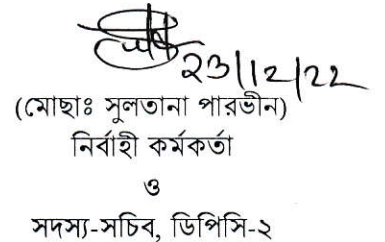 23/12/22
(মোছাঃ সুলতানা পারভীন)
নির্বাহী কর্মকর্তা
ও
সদস্য-সচিব, ডিপিসি-২